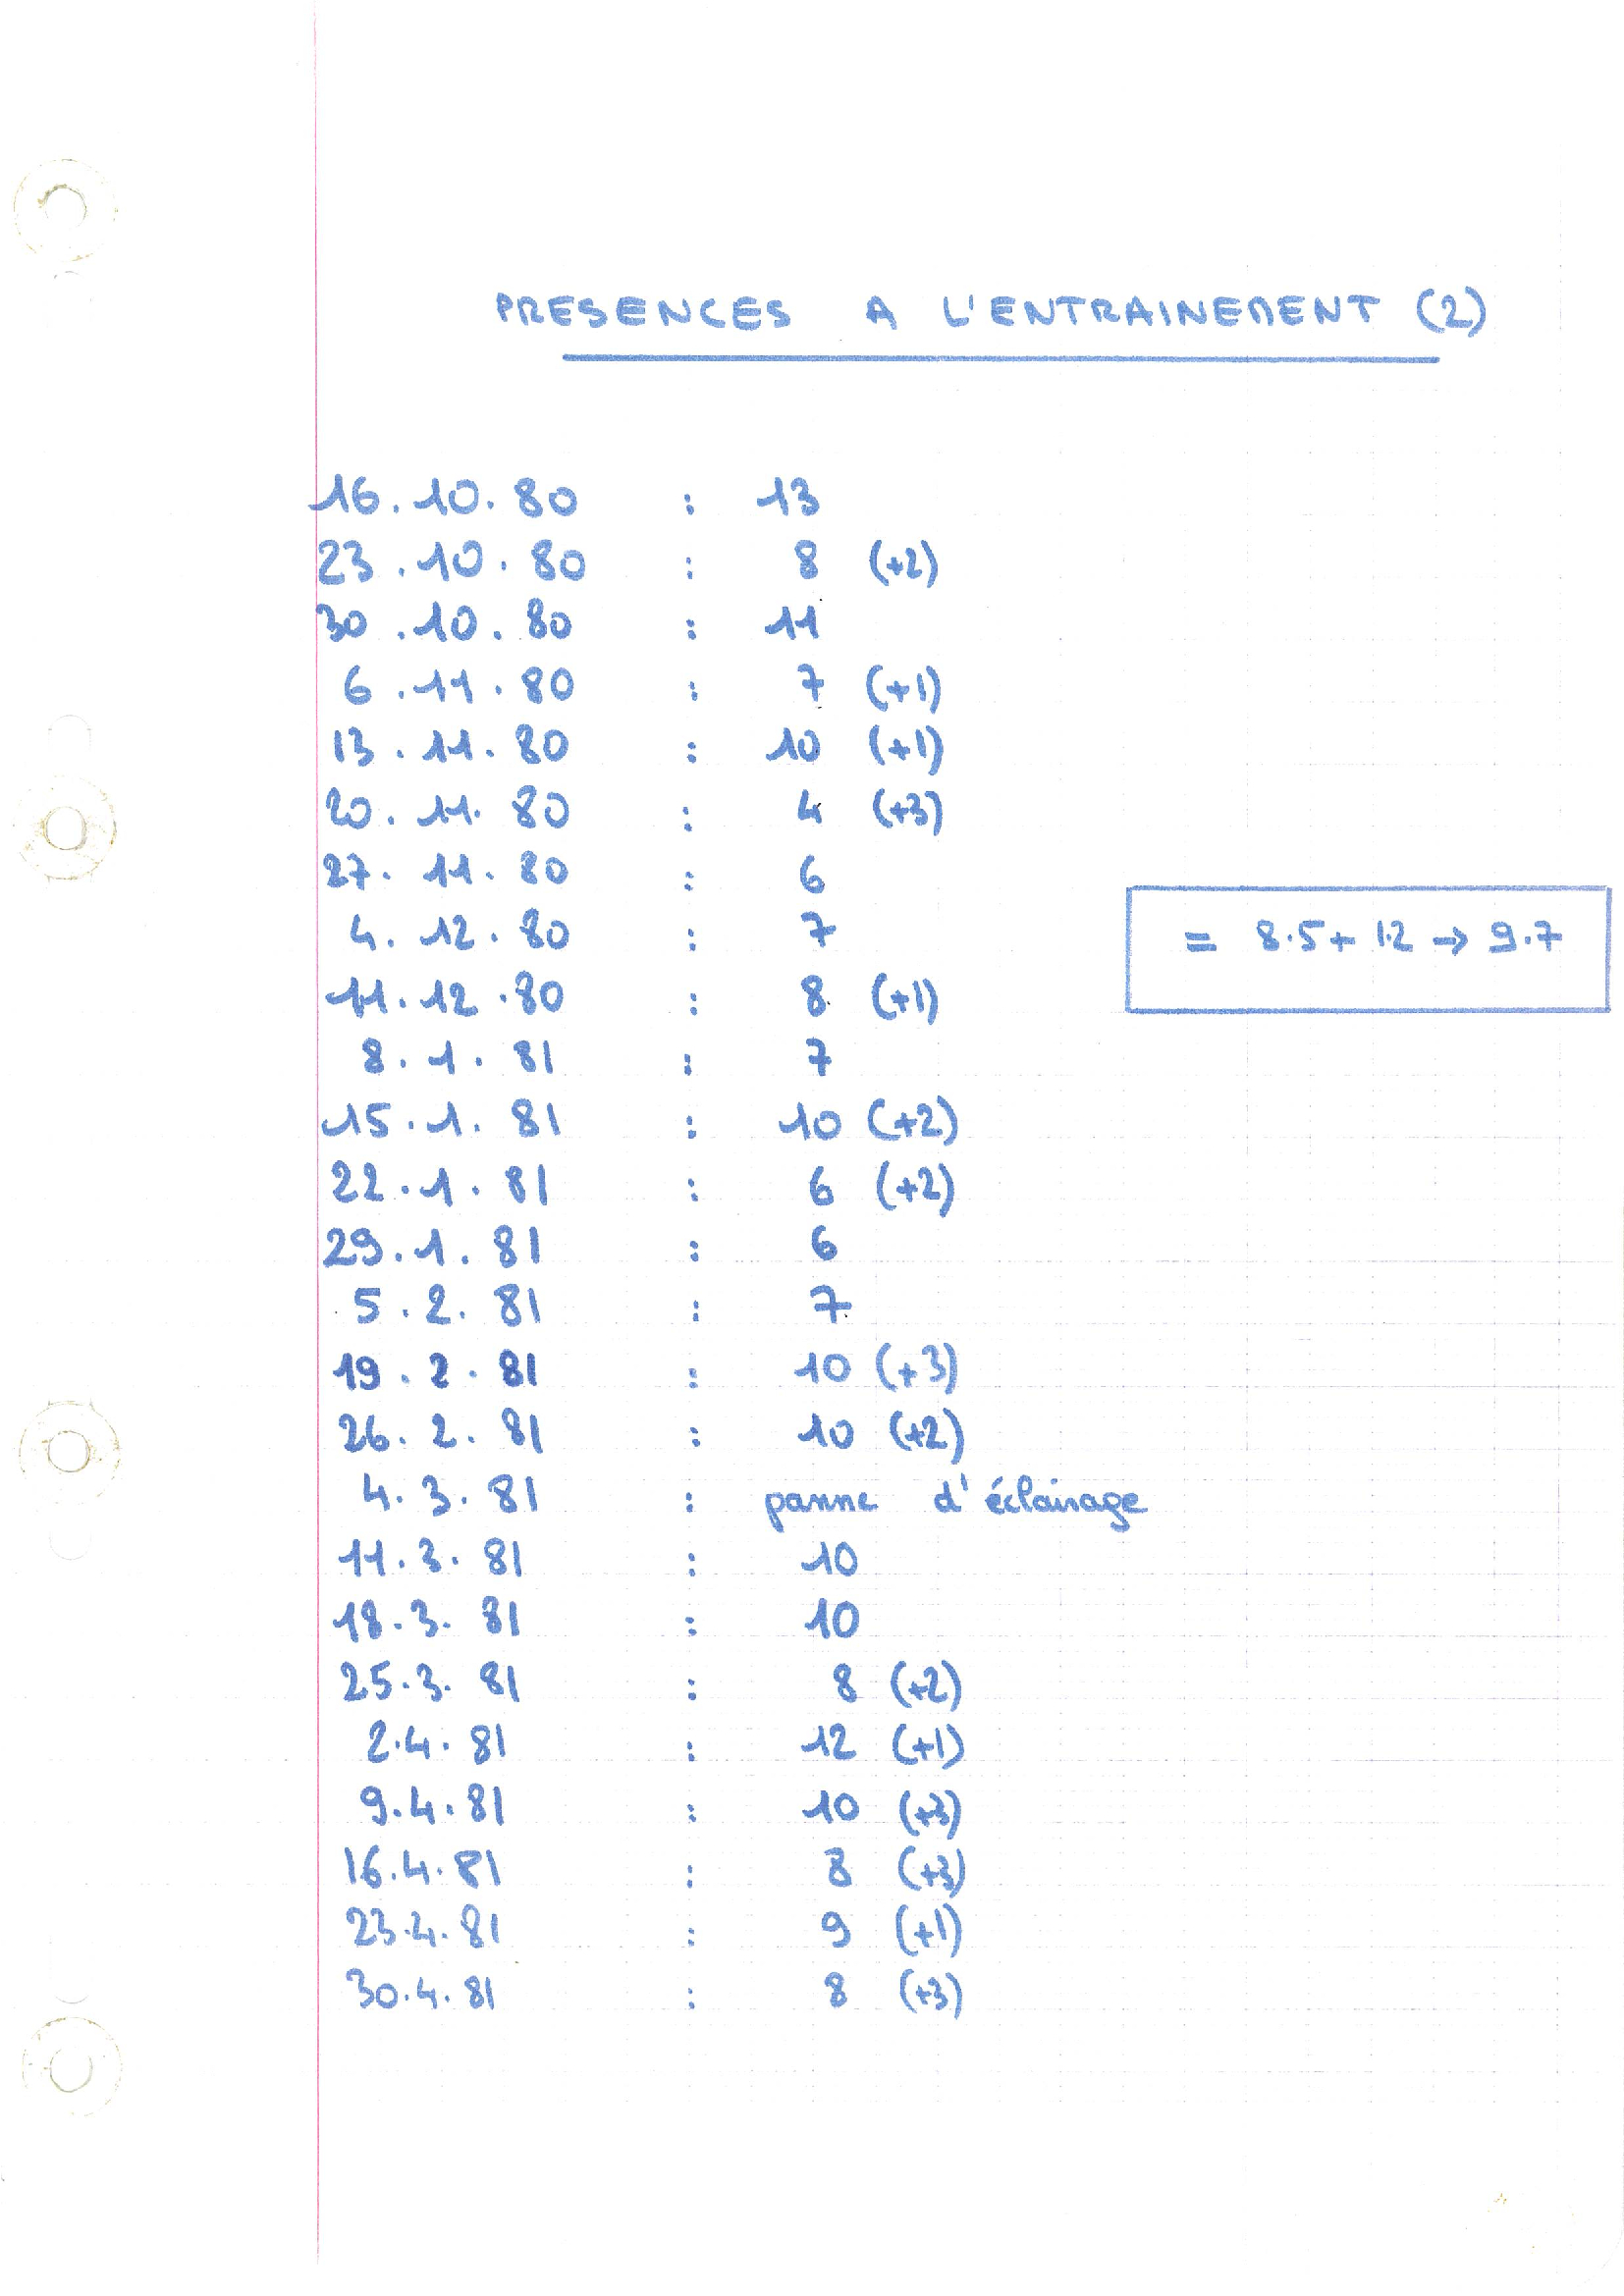 PRESENCES A L'ENTRAINEMENT (2)
16.10.80 : 13
23.10.80 : 8 (+2)
30.10.80 : 11
6.11.80 : 7 (+1)
13.11.80 : 10 (+1)
20.11.80 : 4 (+3)
27.11.80 : 6
4.12.80 : 7
= 8.5+ 1.2 → 9.7
11.12.80 : 8 (+1)
8.1.81 : 7
15.1.81 : 10 (+2)
22.1.81 : 6 (+2)
29.1.81 : 6
5.2.81 : 7
19.2.81 : 10 (+3)
26.2.81 : 10 (+2)
4.3.81 : panne d'éclairage
11.3.81 : 10
18.3.81 : 10
25.3.81 : 8 (+2)
2.4.81 : 12 (+1)
9.4.81 : 10 (+3)
16.4.81 : 8 (+3)
23.4.81 : 9 (+1)
30.4.81 : 8 (+3)